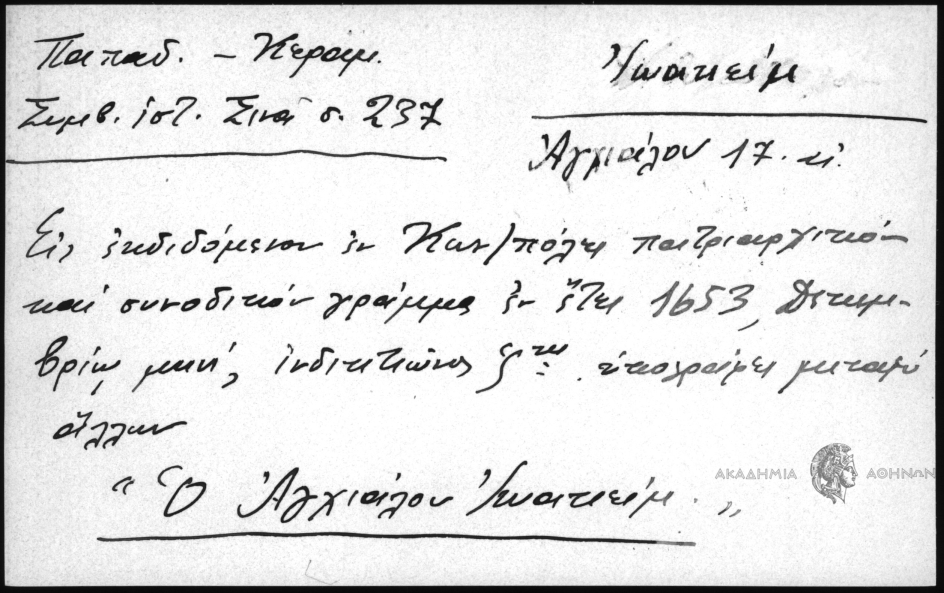 Παπαδ. – Κεραμ.
Συμβ. ἱστ. Σινᾶ σ. 237
Ἰωακείμ
Ἀγχιάλου 17. αἰ.
Εἰς ἐκδιδόμενον ἐν Κων/πόλει πατριαρχικόν
καί συνοδικόν γράμμα ἐν ἔτει 1653, Δεκεμ-
βρίῳ μηνί, ἰνδικτιῶνος ζ<sup>ης</sup> ὑπογράφει μεταξύ
ἄλλων
“ Ὁ Ἀγχιάλου Ἰωακείμ. „
ΑΚΑΔΗΜΙΑ ΑΘΗΝΩΝ